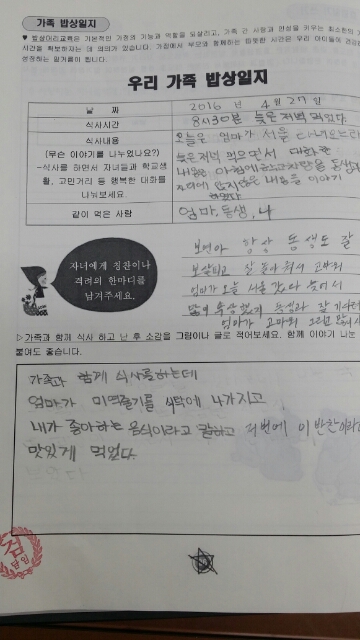 가족 밥상일지
♥ 밥상머리교육은 기본적인 가정의 기능과 역할을 되살리고, 가족 간 사랑과 인성을 키우는 최소한의
시간을 확보하자는 데 의의가 있습니다. 가정에서 부모와 함께하는 따뜻한 시간은 우리 아이들에
성장하는 밑거름이 됩니다.
우리 가족 밥상일지
날 짜
2016 년 4월 27일
식사시간
8시30분 늦은 저녁 먹었다.
식사내용
(무슨 이야기를 나누었나요?)
-식사를 하면서 자녀들과 학교생
활, 고민거리 등 행복한 대화를
나눠보세요.
오늘은 엄마가 서울 다녀오느라
늦은저녁 먹으면서
내용을 이야기
하였다
같이 먹은 사람
엄마, 동생, 나
자녀에게 칭찬이나
격려의 한마디를
남겨주세요.
항상 동생도 잘
보살피고 잘 고마워
엄마가 오늘 서울 갔다 늦어서
동생과 잘 기다려
엄마가 고마워 그리고
▷가족과 함께 식사 하고 난 후 소감을 그림이나 글로 적어보세요. 함께 이야기 나눈
붙여도 좋습니다.
가족과 함께 식사를하는데
엄마가 미역줄기를 식탁에 나가지고
내가 좋아하는 음식이라고 말하고 이 반찬이라
맛있게 먹었다.
검